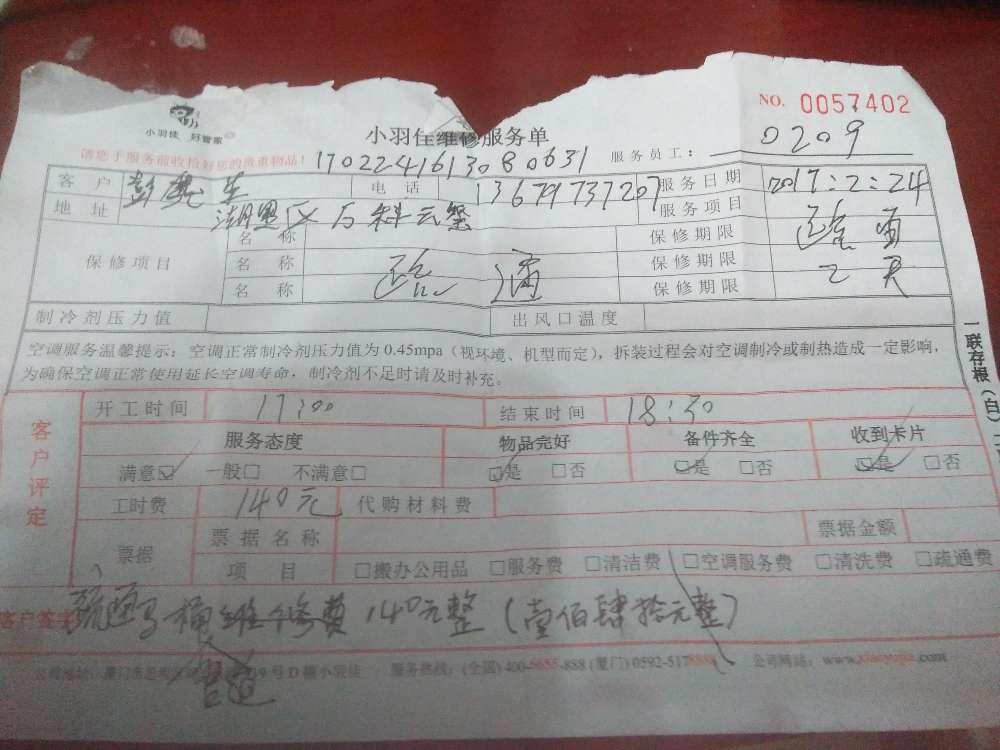 NO. 0057402
小羽佳 好管家
小羽佳维修服务单
请您于服务前收拾好您的贵重物品！ 170224161308 0631 服务员工： 0209
客户 彭 生 电话 13679737207 服务日期 2017:2:24
地址 湖里区万科云玺 服务项目
保修项目 名称 保修期限
名称 保修期限
名称 保修期限 7天
制冷剂压力值 出风口温度
空调服务温馨提示：空调正常制冷剂压力值为0.45mpa（视环境、机型而定），拆装过程会对空调制冷或制热造成一定影响，
为确保空调正常使用延长空调寿命，制冷剂不足时请及时补充。
一联存根（白）
客户评定
开工时间 17:00 结束时间 18:30
服务态度 物品完好 备件齐全 收到卡片
满意☑ 一般□ 不满意□ ☑是 □否 ☑是 □否 ☑是 □否
工时费 140元 代购材料费
票据 票据名称 票据金额
项目 □搬办公用品 □服务费 □清洁费 □空调服务费 □清洗费 □疏通费
客户签字 疏通马桶维修费140元整（壹佰肆拾元整）
管道
公司地址：厦门市 9号D幢小羽佳 服务热线：(全国) 400-6655-888 (厦门) 0592-517 公司网站：www.xiaoyujia.com